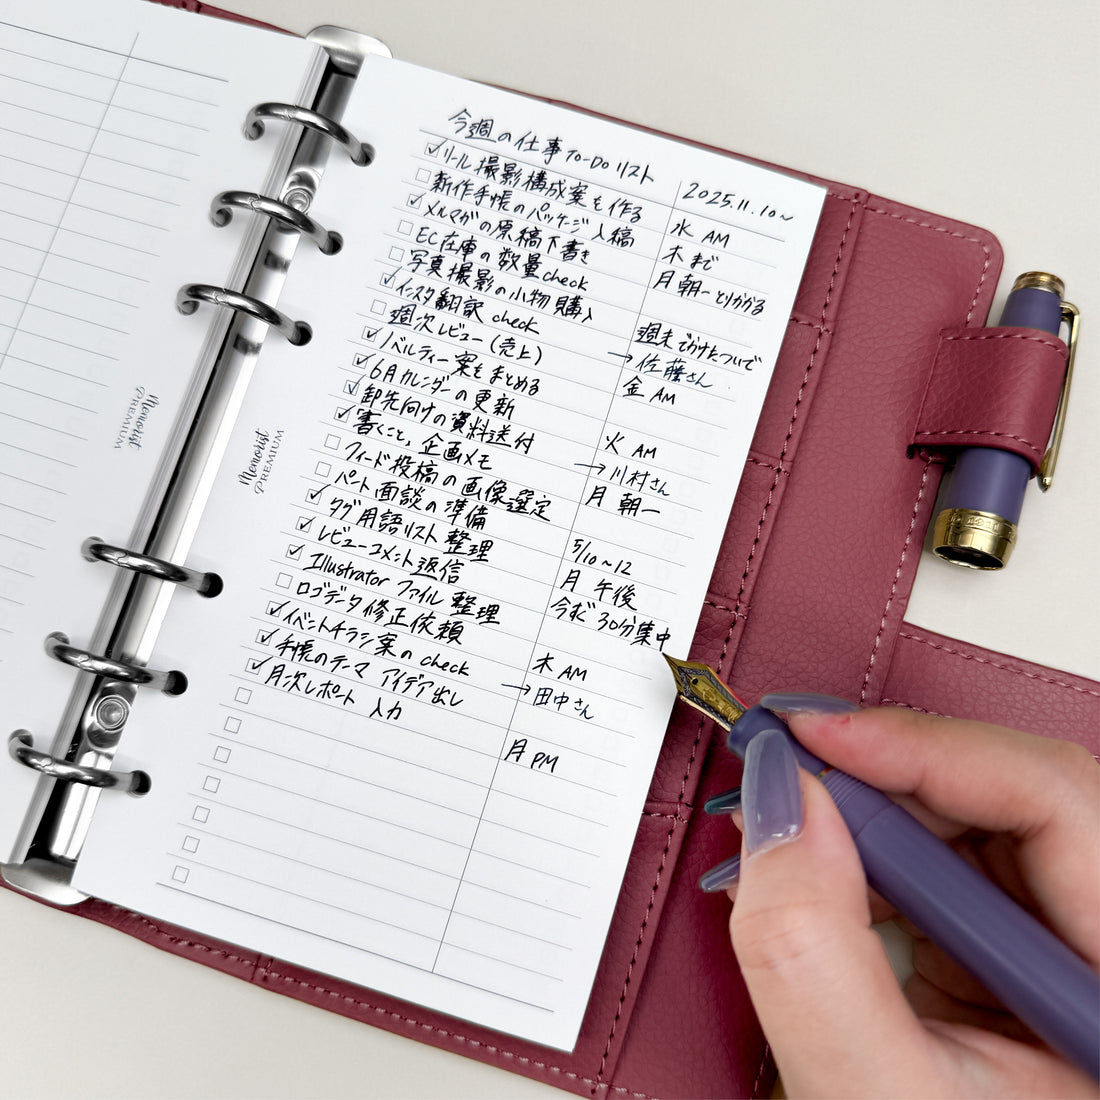 今週の仕事 To-Do リスト
2025.11.10~
リール撮影構成案を作る
水 AM
新作手帳のパッケージ入稿
木まで
メルマガの原稿下書き
月朝一とりかかる
EC在庫の数量check
写真撮影の小物購入
週末でかけたついで
インスタ翻訳 check
→佐藤さん
週次レビュー(売上)
金 AM
ノベルティー案をまとめる
6月カレンダーの更新
火 AM
卸先向けの資料送付
→川村さん
書くこと、企画メモ
月 朝一
フィード投稿の画像選定
パート面談の準備
5/10~12
タグ用語リスト整理
月 午後
レビューコメント返信
今すぐ30分集中
Illustrator ファイル整理
ロゴデータ修正依頼
木 AM
イベントチラシ案の check
→田中さん
手帳のテーマ アイデア出し
月次レポート 入力
月 PM
Memorist
PREMIUM
Memorist
PREMIUM